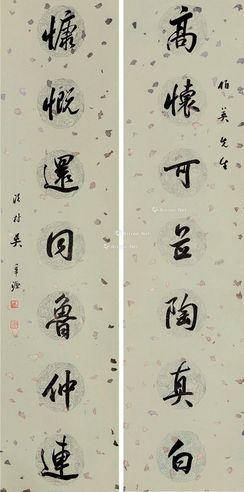 伯英先生
高懷可陶真白
慷慨還同魯仲連
村吳